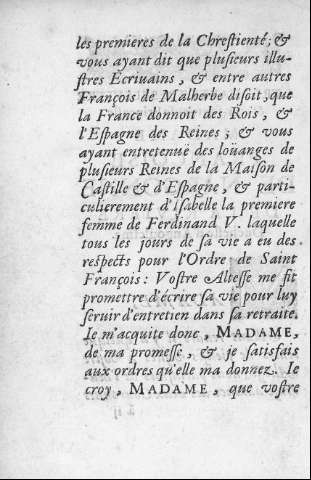 les premieres de la Chrestienté; &
vous ayant dit que plusieurs illu-
stres Ecriuains, & entre autres
François de Malherbe disoit, que
la France donnoit des Rois, &
l'Espagne des Reines; & vous
ayant entretenuë des loüanges de
plusieurs Reines de la Maison de
Castille & d'Espagne, & parti-
culierement d'Isabelle la premiere
femme de Ferdinand V. laquelle
tous les jours de sa vie a eu des
respects pour l'Ordre de Saint
François: Vostre Altesse me fit
promettre d'écrire sa vie pour luy
seruir d'entretien dans sa retraite.
Ie m'acquite donc, MADAME,
de ma promesse, & je satisfais
aux ordres qu'elle ma donnez. Ie
croy, MADAME, que vostre